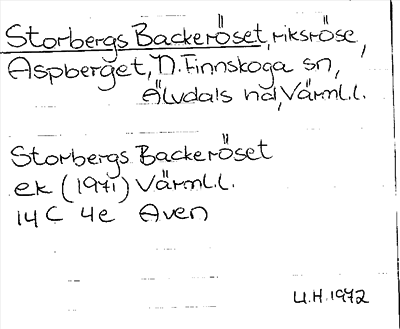 Storbergs Backeröset, riksröse,
Aspberget, N. Finnskoga sn,
Älvdals hd, Värml.l.
Storbergs Backeröset
ek (1971) Värml.l.
14 C 4e Aven
U.H. 1972